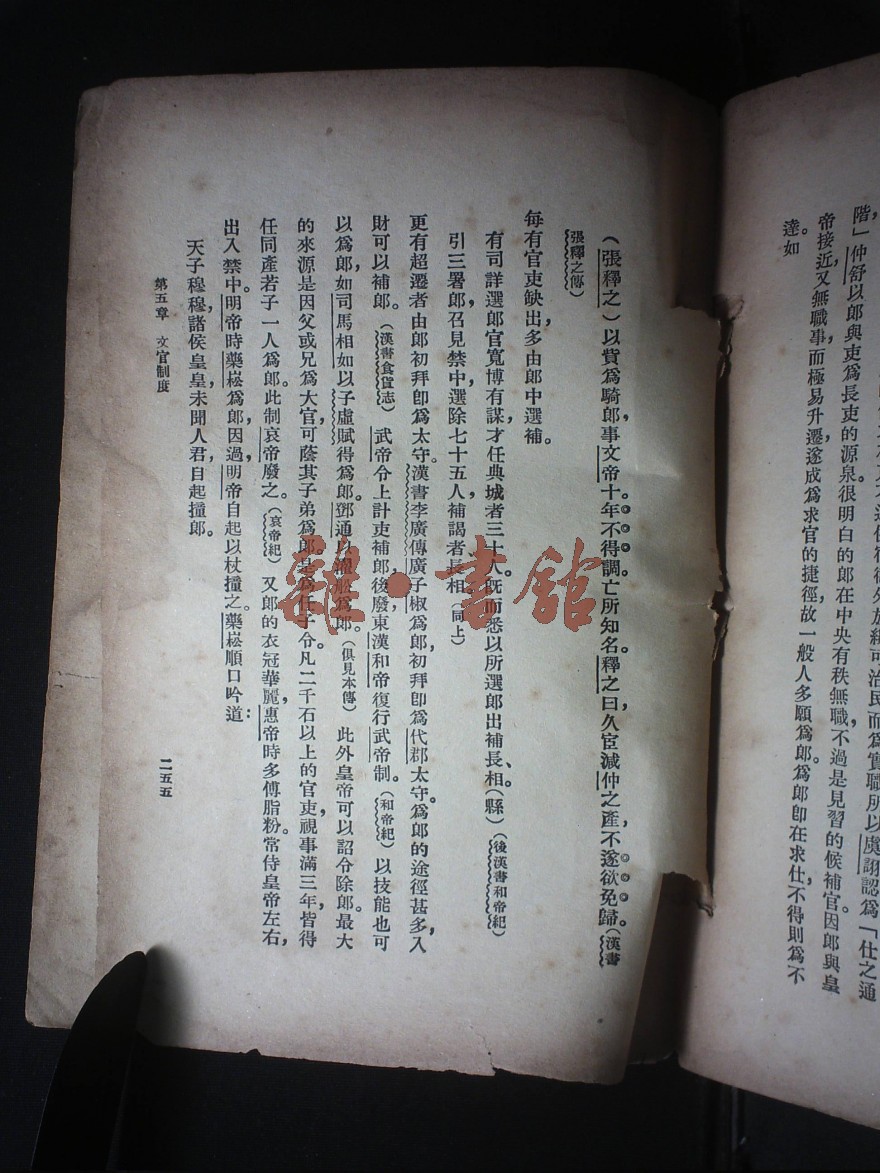 階」仲舒以郎與吏爲長吏的源泉。很明白的郎在中央有秩無職不過是見習的候補官因郎與皇
帝接近又無職事而極易升遷遂成爲求官的捷徑故一般人多願爲郎。爲郎即在求仕不得則爲不
達如
（張釋之）以貲爲騎郎，事文帝十年不得調。亡所知名。釋之曰久宦減仲之產，不遂欲免歸。（漢書
張釋之傳）
每有官吏缺出，多由郎中選補。
有司詳選郎官寬博有謀，才任典城者三十人。既而悉以所選郎出補長、相（縣）（後漢書和帝紀）
引三署郎召見禁中，選除七十五人，補謁者長相。（同上）
更有超遷者由郎初拜卽爲太守。漢書李廣傳廣子椒爲郎，初拜卽爲代郡太守。爲郎的途徑甚多，入
財可以補郎。（漢書食貨志）武帝令上計吏補郎後廢東漢和帝復行武帝制。（和帝紀）以技能也可
以爲郎，如司馬相如以子虛賦得爲郎。鄧通以濯船爲郎。（俱見本傳）此外皇帝可以詔令除郎。最大
的來源是因父或兄爲大官可蔭其子弟爲郎。是爲任子令。凡二千石以上的官吏，視事滿三年皆得
任同產若子一人爲郎。此制哀帝廢之。（哀帝紀）又郎的衣冠華麗，惠帝時多傅脂粉。常侍皇帝左右，
出入禁中。明帝時藥崧爲郎，因過，明帝自起以杖撞之。藥崧順口吟道：
天子穆穆，諸侯皇皇，未聞人君，自起撞郎。
第五章 文官制度
二五五
雜·書館